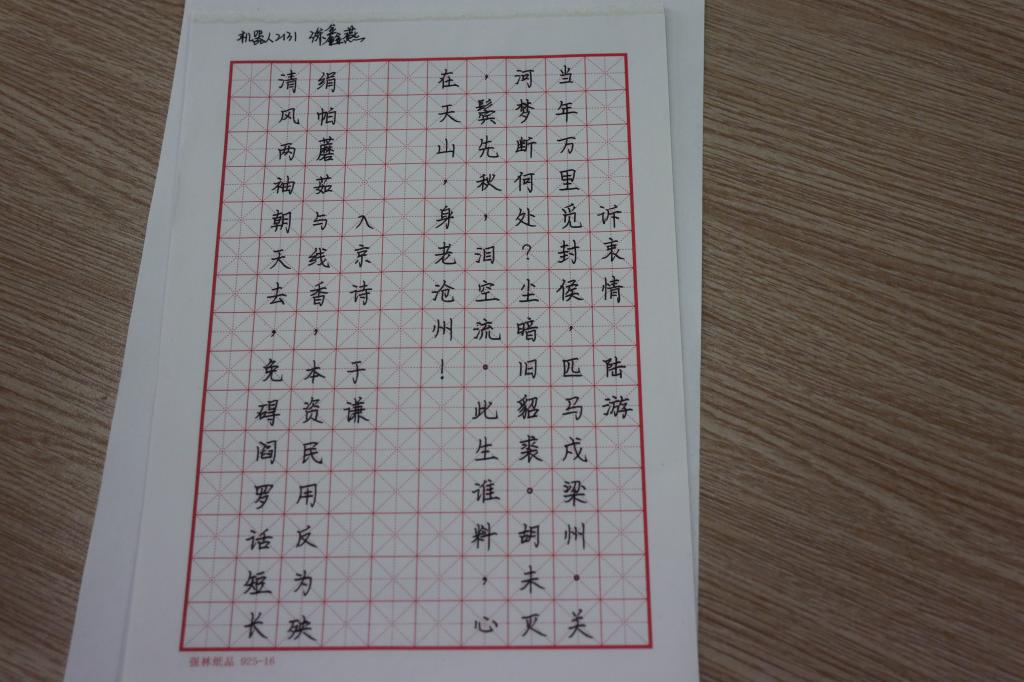 机器人2131 涂鑫燕
诉衷情 陆游
当年万里觅封侯，匹马戍梁州。关
河梦断何处？尘暗旧貂裘。胡未灭
，鬓先秋，泪空流。此生谁料，心
在天山，身老沧州！
入京诗 于谦
绢帕蘑茹与线香，本资民用反为殃
清风两袖朝天去，免碍阎罗话短长
强林纸品 925-16